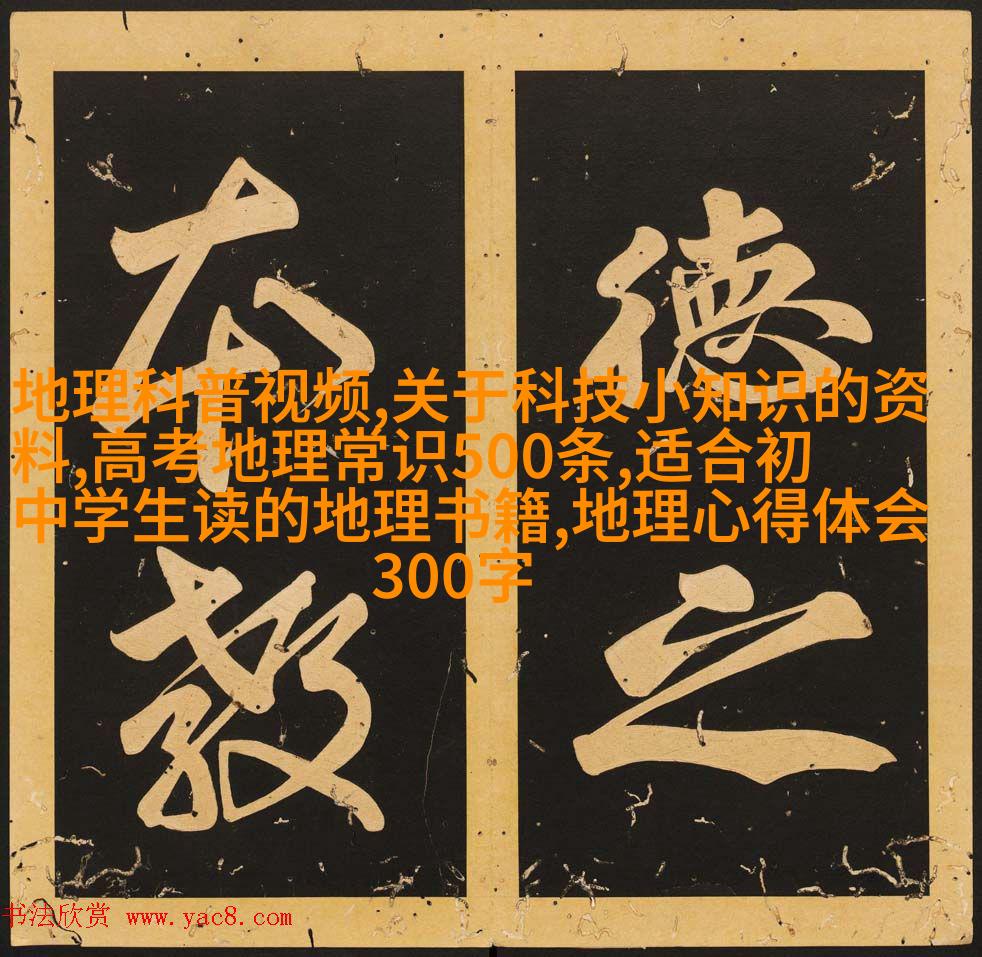 德之
本教
地理科普视频,关于科技小知识的资
料,高考地理常识500条,适合初
中学生读的地理书籍,地理心得体会
300字
书法欣赏 www.yac8.com